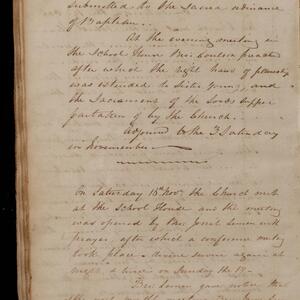 submitted to the sacred ordinance
of Baptism.
At the evening meeting in
the School House Bro. Coulson preached
after which the right hand of fellowship
was extended to Sister Young, and
the Sacrament of the Lords Supper
partaken of by the Church.
Adjourned to the 3 Saturday
in November
On Saturday 18 Nov. the Church met
at the School House and the meeting
was opened by Bro. Lemen with
prayer, after which a conference meeting
took place - divine service again at
night, & twice on Sunday the 19 -
Bro. Lemen gave notice that